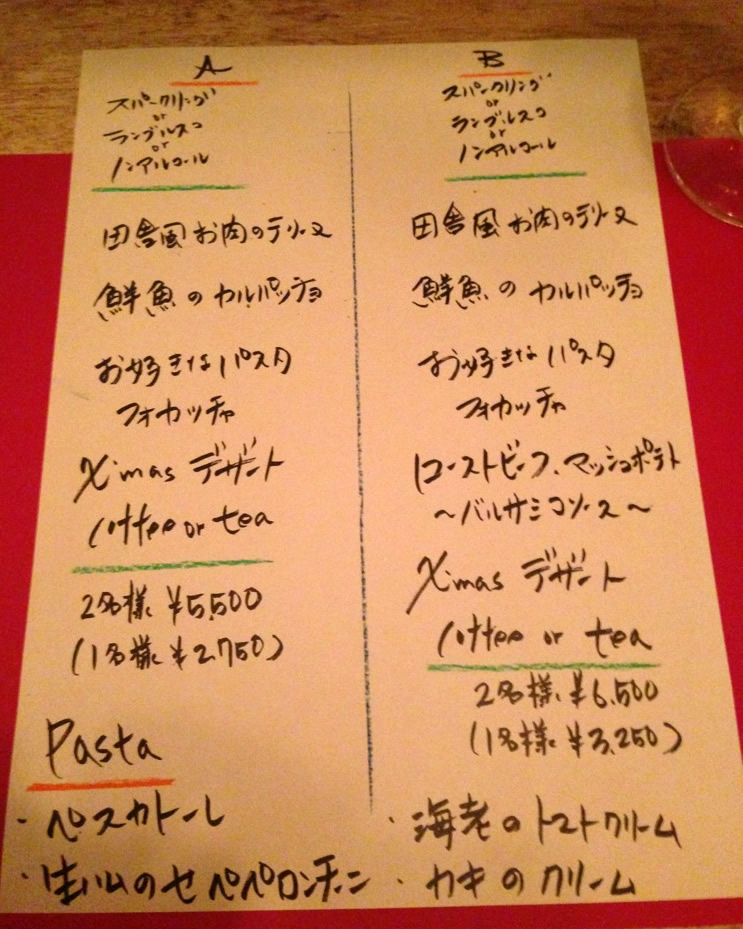 A
スパークリング
or
ランブルスコ
or
ノンアルコール
田舎風お肉のテリーヌ
鮮魚のカルパッチョ
お好きなパスタ
フォカッチャ
X'mas デザート
Coffee or tea
2名様 ¥5,500
(1名様 ¥2,750)
B
スパークリング
or
ランブルスコ
or
ノンアルコール
田舎風お肉のテリーヌ
鮮魚のカルパッチョ
お好きなパスタ
フォカッチャ
ローストビーフ、マッシュポテト
~バルサミコソース~
X'mas デザート
Coffee or tea
2名様 ¥6,500
(1名様 ¥3,250)
Pasta
・ペスカトーレ
・生ハムのせペペロンチーニ
・海老のトマトクリーム
・カキのクリーム